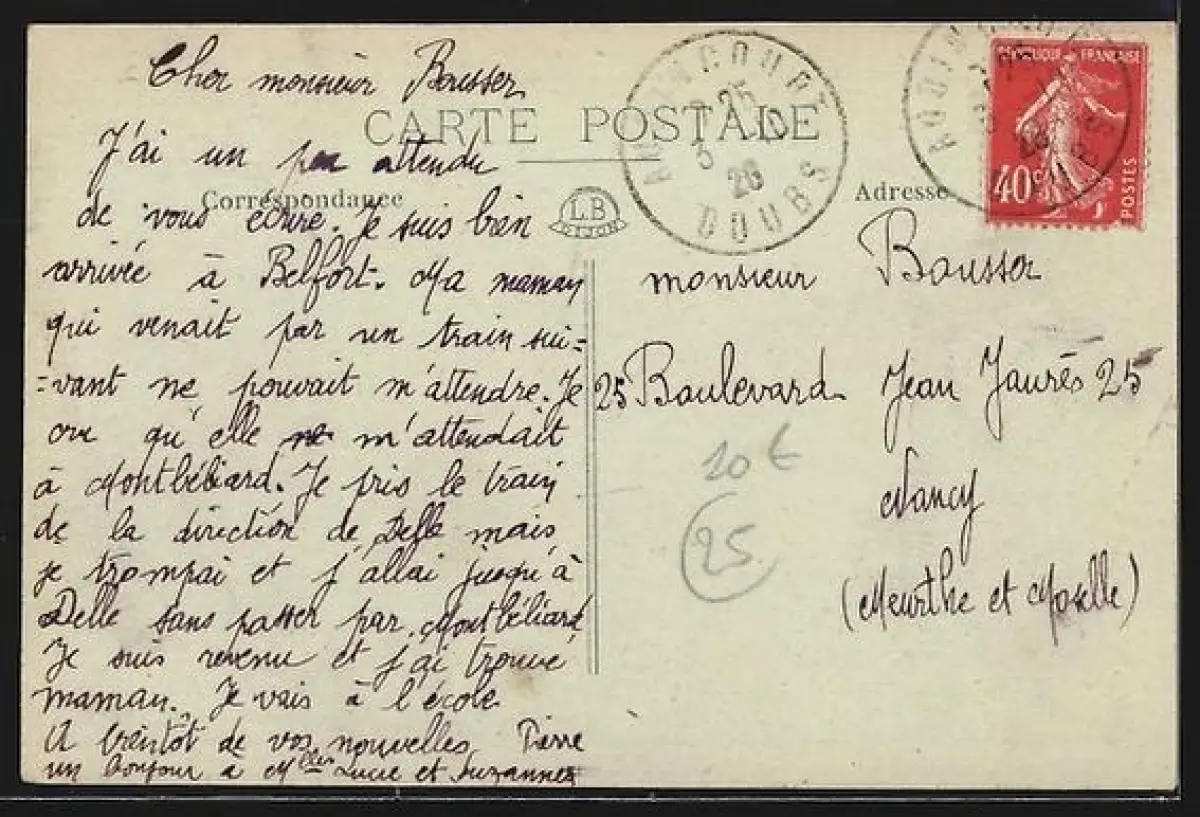 Cher monsieur Bousser
CARTE POSTALE
J'ai un peu attendu
Correspondance
de vous écrire. Je suis bien
arrivée à Belfort. Ma maman
qui venait par un train sui=
=vant ne pouvait m'attendre. Je
cru qu'elle ne m'attendait
à Montbéliard. Je pris le train
de la direction de Delle mais
je trompai et j'allai jusqu'à
Delle sans passer par Montbéliard
Je suis revenu et j'ai trouvé
maman. Je vais à l'école
A bientôt de vos nouvelles Pierre
un bonjour à Mlles Lucie et Suzanne
LB
DIJON
AUDINCOURT
25
26
DOUBS
Adresse
REPUBLIQUE FRANÇAISE
40c
POSTES
monsieur Bousser
25 Boulevard Jean Jaurès 25
Nancy
(Meurthe et Moselle)
10 €
25